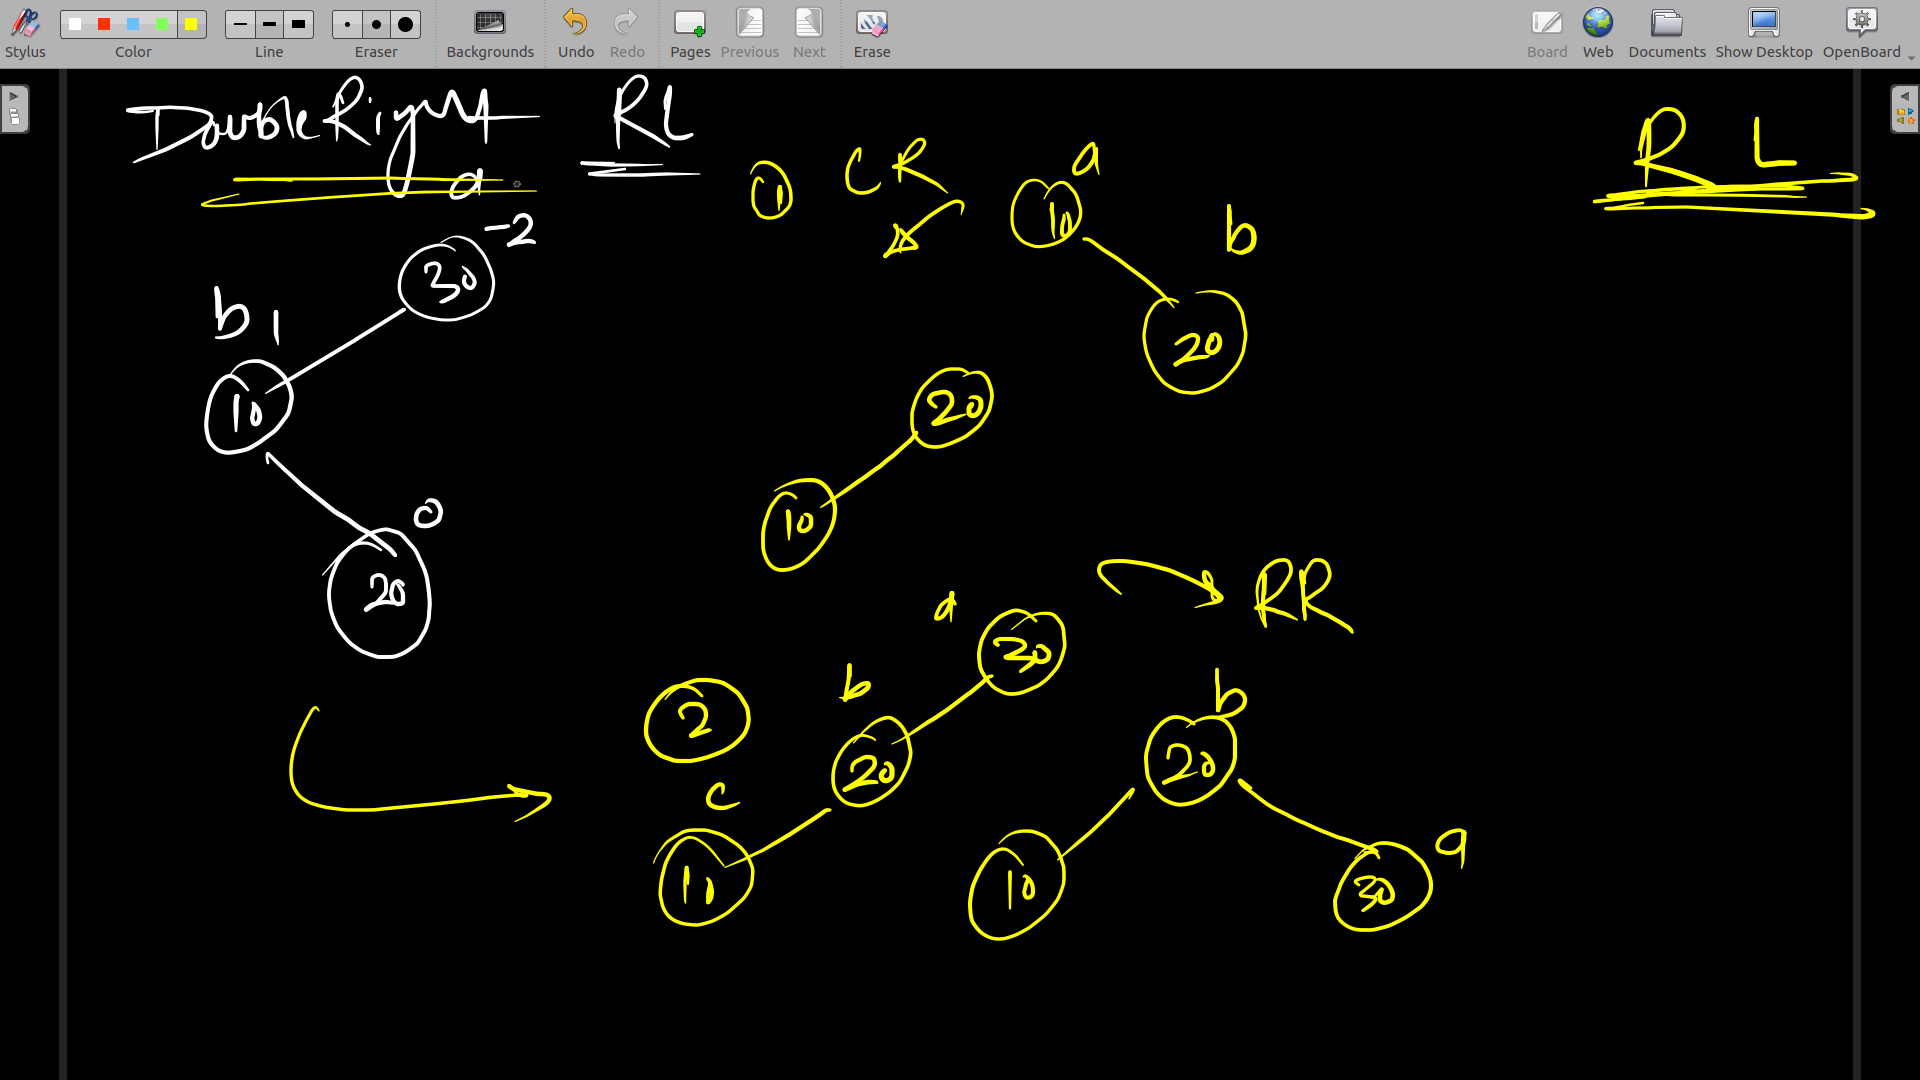 Stylus Color Line Eraser Backgrounds Undo Redo Pages Previous Next Erase Board Web Documents Show Desktop OpenBoard
Double Right RL
R L
a
-2
30
b 1
10
0
20
1 CR
a
10
b
20
20
10
RR
2
a
30
b
20
c
10
b
20
10
a
30